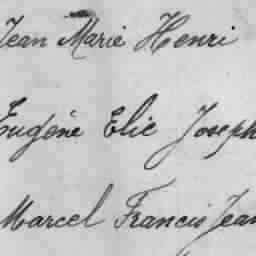 Jean Marie Henri
Eugène Elie Joseph
Marcel Francis Jean